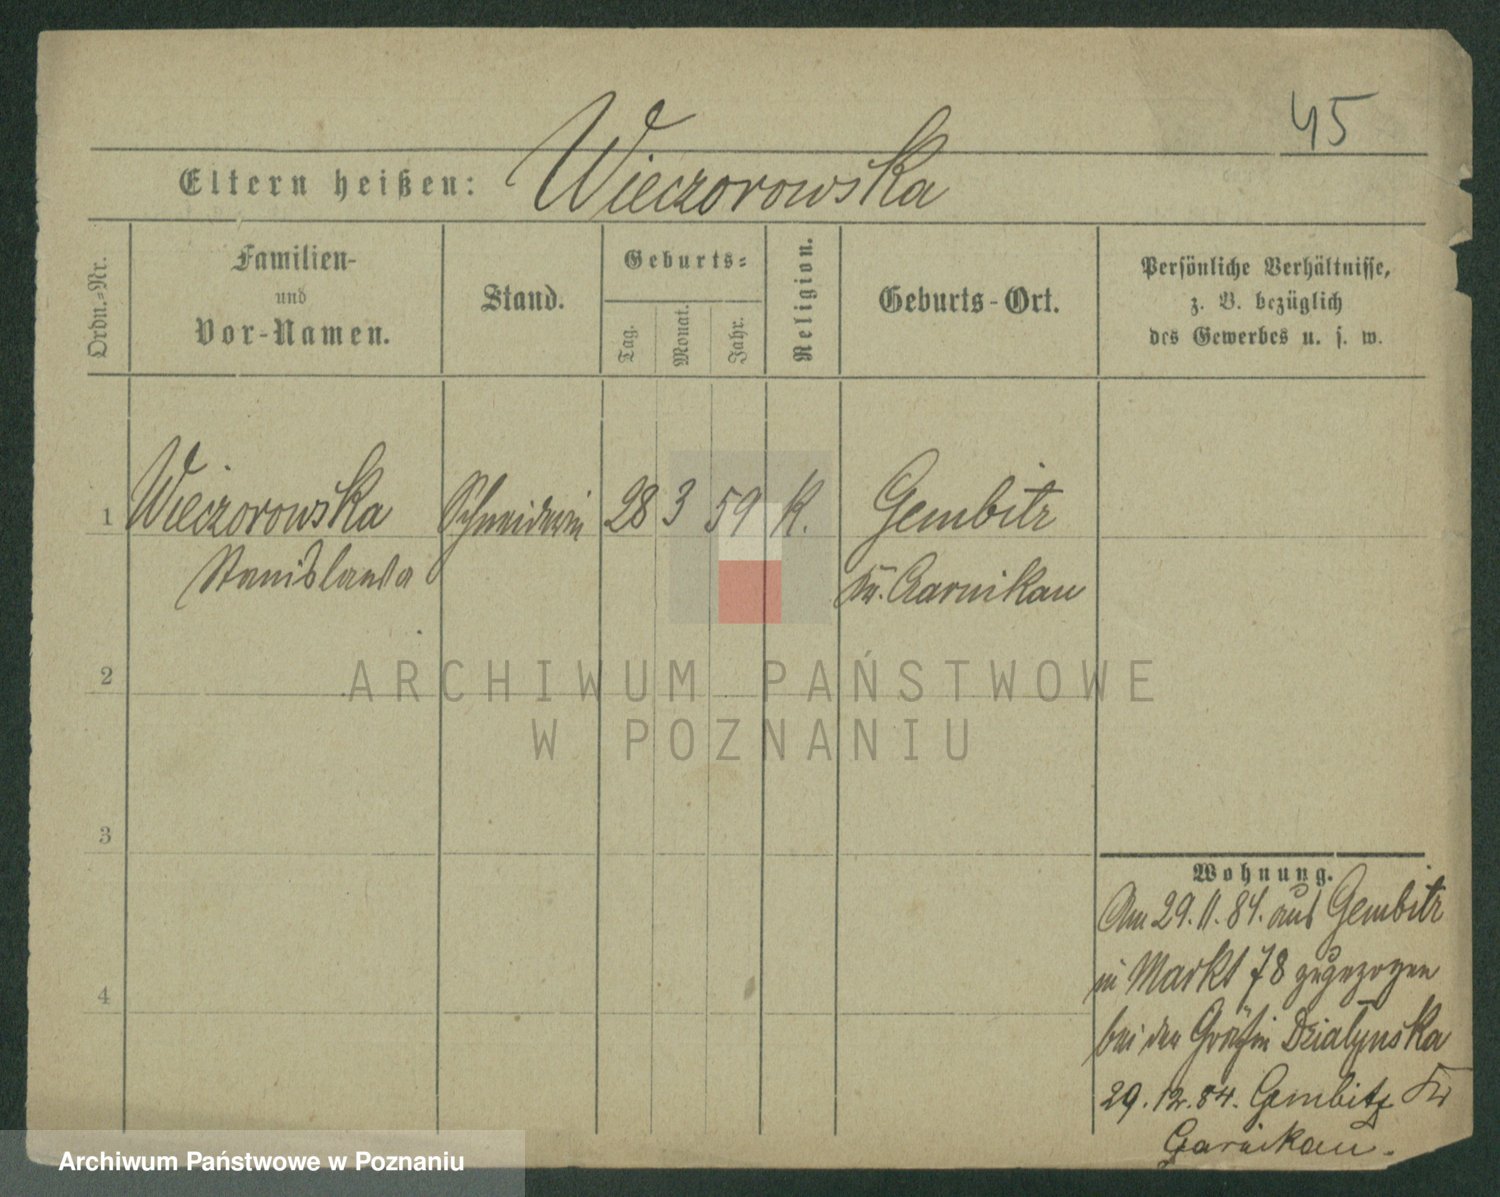 45
Eltern heißen: Wieczorowska
Ordn.-Nr.
Familien-
und
Vor-Namen.
Stand.
Geburts-
Tag.
Monat.
Jahr.
Religion.
Geburts-Ort.
Persönliche Verhältnisse,
z. B. bezüglich
des Gewerbes u. s. w.
1 Wieczorowska Schneiderin 28 3 59 K. Gembitz
Stanislawa Kr. Czarnikau
2
ARCHIWUM PAŃSTWOWE
W POZNANIU
3
Wohnung.
Am 29.11.84. aus Gembitz
in Markt 78 zugezogen
bei der Gräfin Dzialynska
4
29.12.84. Gembitz Kr
Czarnikau.
Archiwum Państwowe w Poznaniu